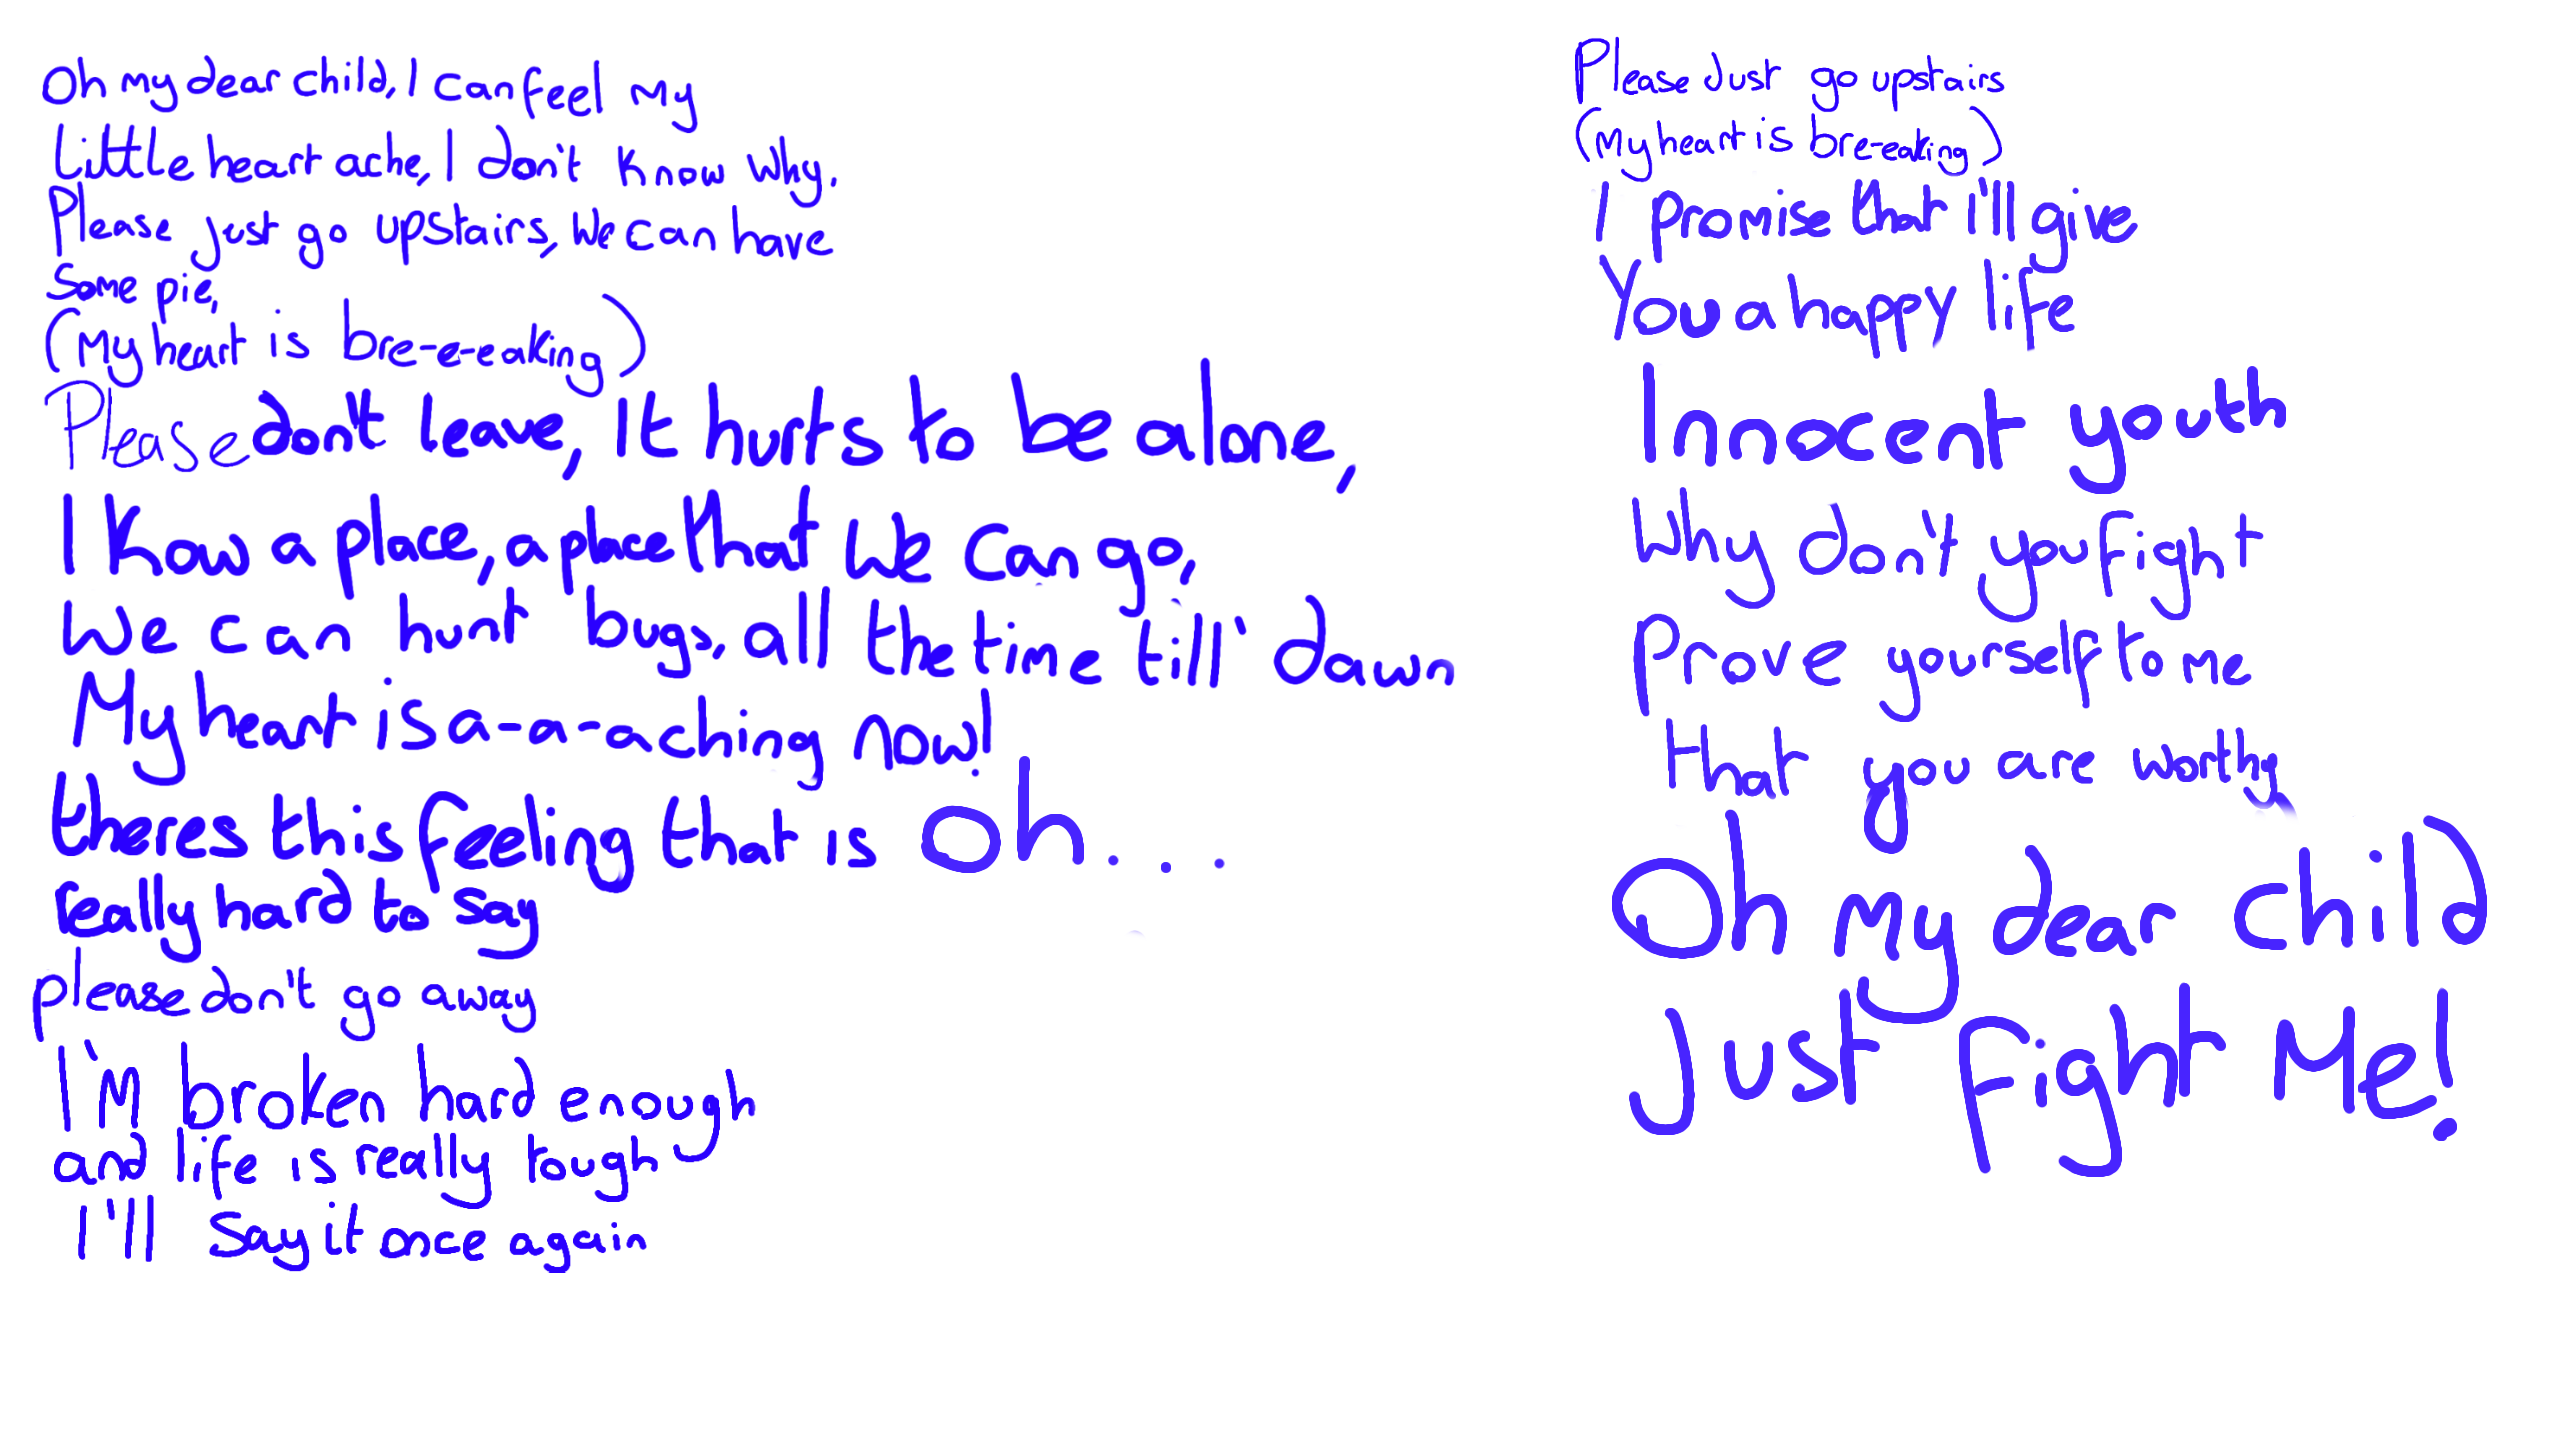 Oh my dear child, I can feel my
little heart ache, I don't know why.
Please just go upstairs, we can have
some pie,
(My heart is bre-e-eaking)
Please don't leave, It hurts to be alone,
I know a place, a place that we can go,
We can hunt bugs, all the time till' dawn
My heart is a-a-aching now!
theres this feeling that is oh...
really hard to say
please don't go away
I'm broken hard enough
and life is really tough
I'll say it once again
Please Just go upstairs
(My heart is bre-eaking)
I promise that I'll give
You a happy life
Innocent youth
Why don't you fight
Prove yourself to me
that you are worthy
Oh my dear child
Just fight Me!